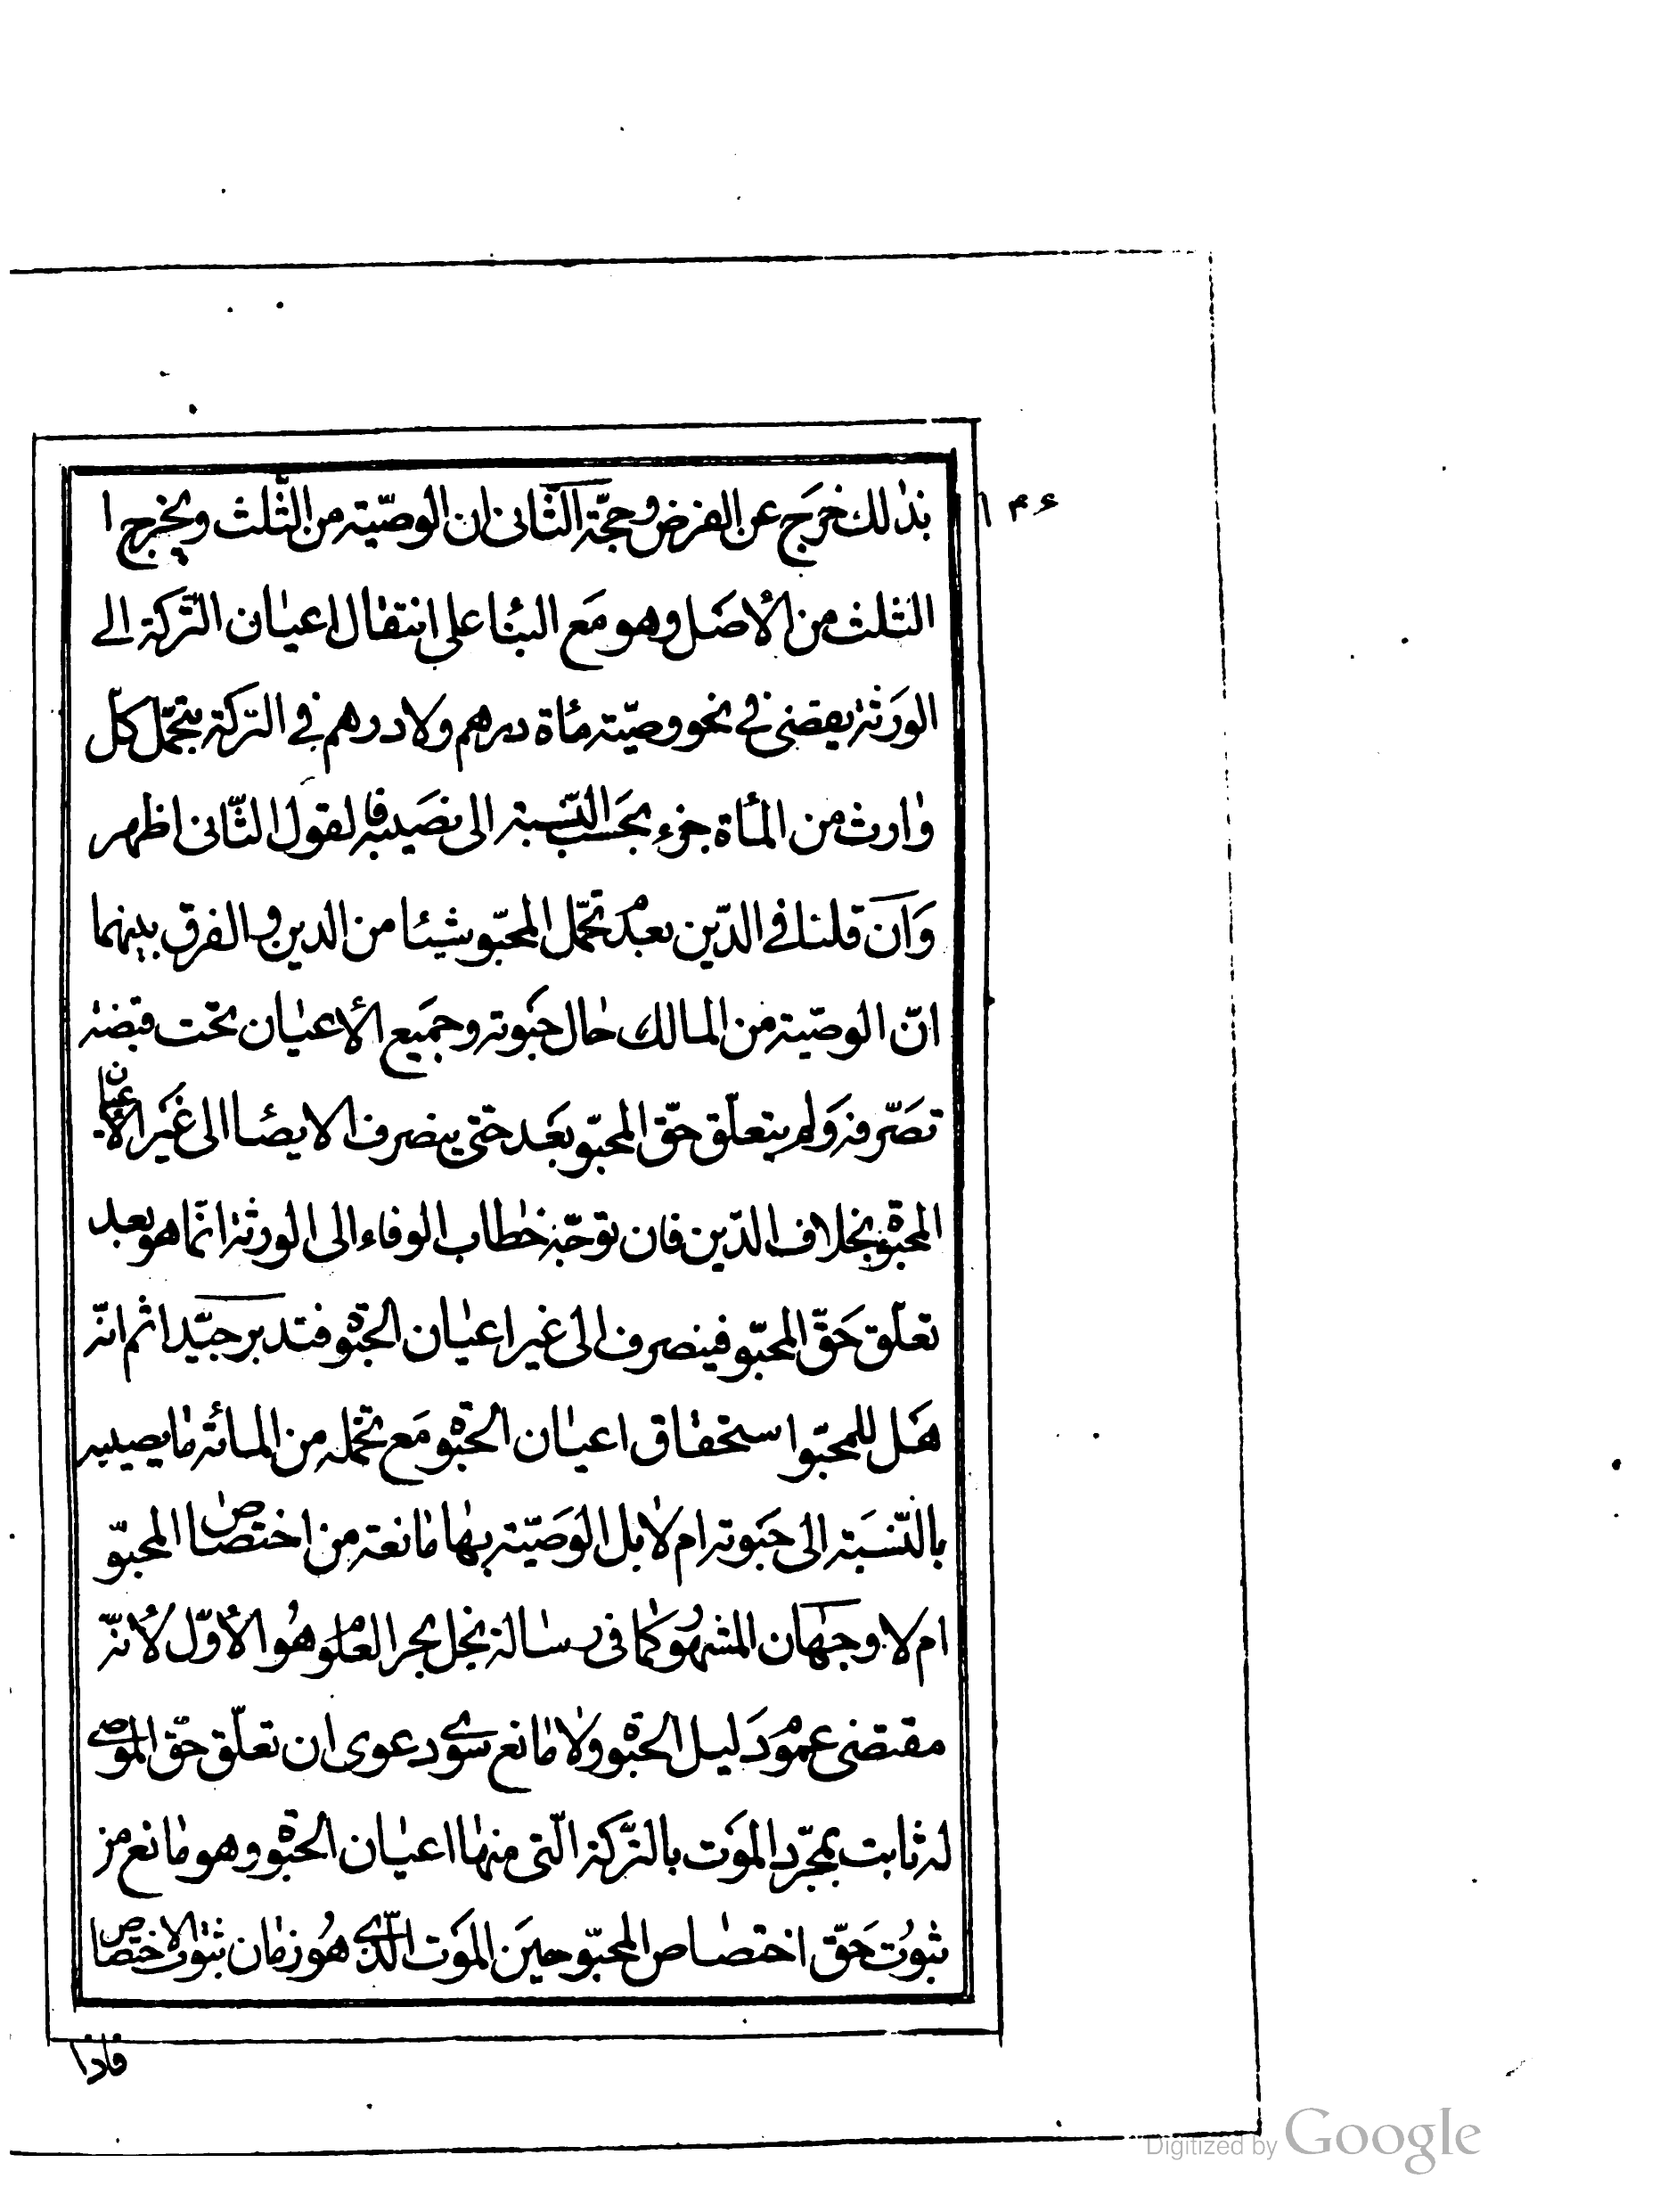 ١٣٤
بذلك خرج عن الفرض وحجّة الثّانى ان الوصيّة من الثّلث ويخرج ا
الثلث من الأصل وهو مع البناء على انتقال اعيان التّركة الى
الورثة يقضى فى نحو وصيّة مأة درهم ولا درهم فى التركة بتحمّل كل
وارث من المأة جزء بحسب النّسبة الى نصيبه فالقول الثّانى اظهر
وان قلنا فى الدّين بعدم تحمّل المحبوّ شيئا من الدين والفرق بينهما
انّ الوصيّة من المالك حال حيوته وجميع الأعيان تحت قبضة
تصرّفه ولم يتعلّق حقّ المحبوّ بعد حتى ينصرف الايصا الى غير الأعيان
المحبوّة بخلاف الدّين فان توجّه خطاب الوفاء الى الورثة انّما هو بعد
تعلّق حقّ المحبوّ فينصرف الى غير اعيان الحبوة فتدبر جيّدا ثم انّه
هل للمحبوّ استحقاق اعيان الحبوة مع تحمّله من المائة ما يصيبه
بالنّسبة الى حبوته ام لا بل الوصيّة بها مانعة من اختصاص المحبوّ
ام لا وجهان المشهور كما فى رسالة نجل بحر العلوم هو الأوّل لأنّه
مقتضى عموم دليل الحبوة ولا مانع سوى دعوى ان تعلّق حقّ الموصى
له ثابت بمجرّد الموت بالتّركة الّتى منها اعيان الحبوة وهو مانع من
ثبوت حقّ اختصاص المحبوّ حين الموت الّذى هو زمان ثبوت الاختصاص
فاذا
Digitized by Google